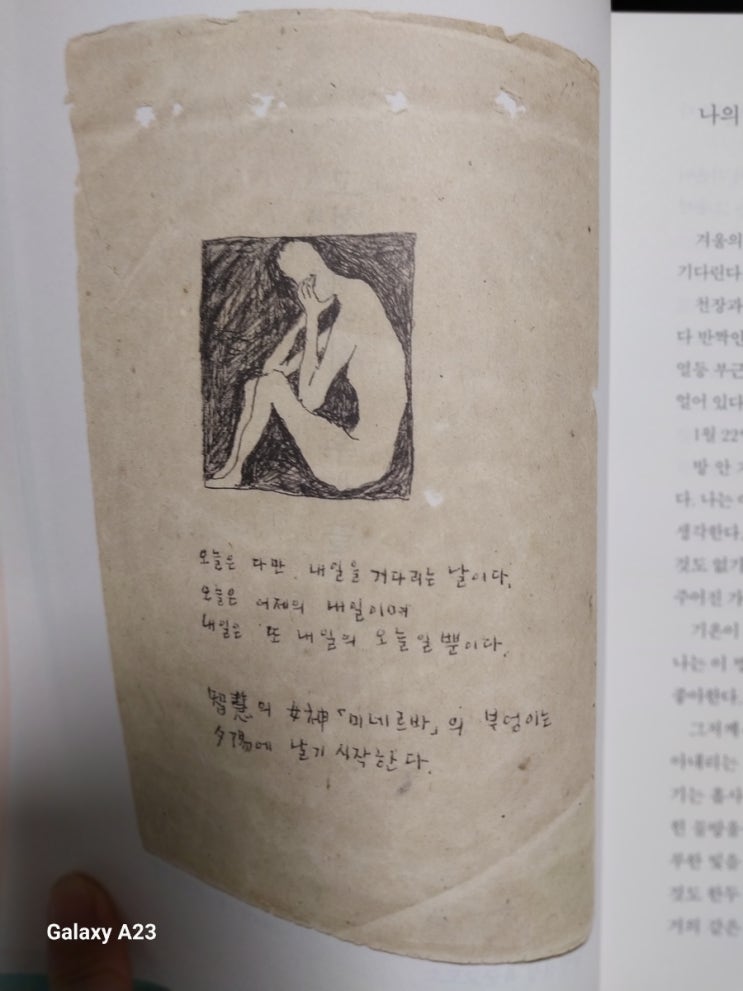 오늘은 다만 내일을 기다리는 날이다.
오늘은 어제의 내일이며
내일은 또 내일의 오늘일 뿐이다.
智慧의 女神「미네르바」의 부엉이는
夕陽에 날기 시작한다.
나의
겨울의
기다린다
천장과
다 반짝인
열등 부근
얼어 있다
1월 22일
방 안
다. 나는
생각한다.
것도 없기
주어진
기온이
나는 이
좋아한다.
그저께
아내리는
기는 흡사
힌 물방울
부한 빛을
것도 한두
거의 같은
Galaxy A23